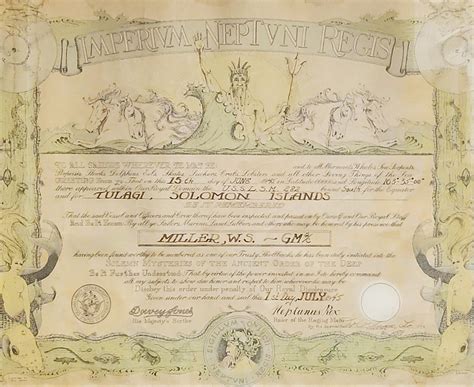 IMPERIVM NEPTVNI REGIS
TO ALL SAILORS WHEREVER YE MAY BE: and to all Mermaids, Whales, Sea Serpents,
Porpoises, Sharks, Dolphins, Eels, Skates, Suckers, Crabs, Lobsters and all other Living Things of the Sea
GREETING: Know ye: That on this 15th day of JUNE 1945 in Latitude 00000 and Longitude
there appeared within Our Royal Domain the U.S.S. L.S.M. bound South for the Equator
and for TULAGI, SOLOMON ISLANDS
BE IT REMEMBERED
That the said Vessel and Officers and Crew thereof, have been inspected and passed on by Ourself and Our Royal Staff
And Be It Known: By all ye Sailors, Marines, Land Lubbers and others who may be honored by his presence that
MILLER, W.S. – GM
having been found worthy to be numbered as one of our Trusty Shellbacks he has been duly initiated into the
SOLEMN MYSTERIES OF THE ANCIENT ORDER OF THE DEEP
Be It Further Understood: That by virtue of the power invested in me I do hereby command
all my subjects to show due honor and respect to him wherever he may be
Disobey this order under penalty of Our Royal Displeasure
Given under our hand and seal this 1st Day, JULY 1945
Davey Jones
His Majesty's Scribe
Neptunus Rex
Ruler of the Raging Main